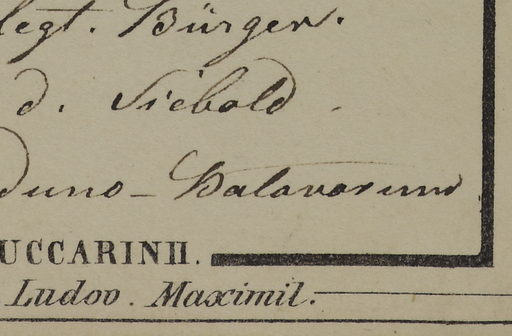 legt. Bürger.
d. Siebold
duno-Batavorum
UCCARINII.
Ludov. Maximil.